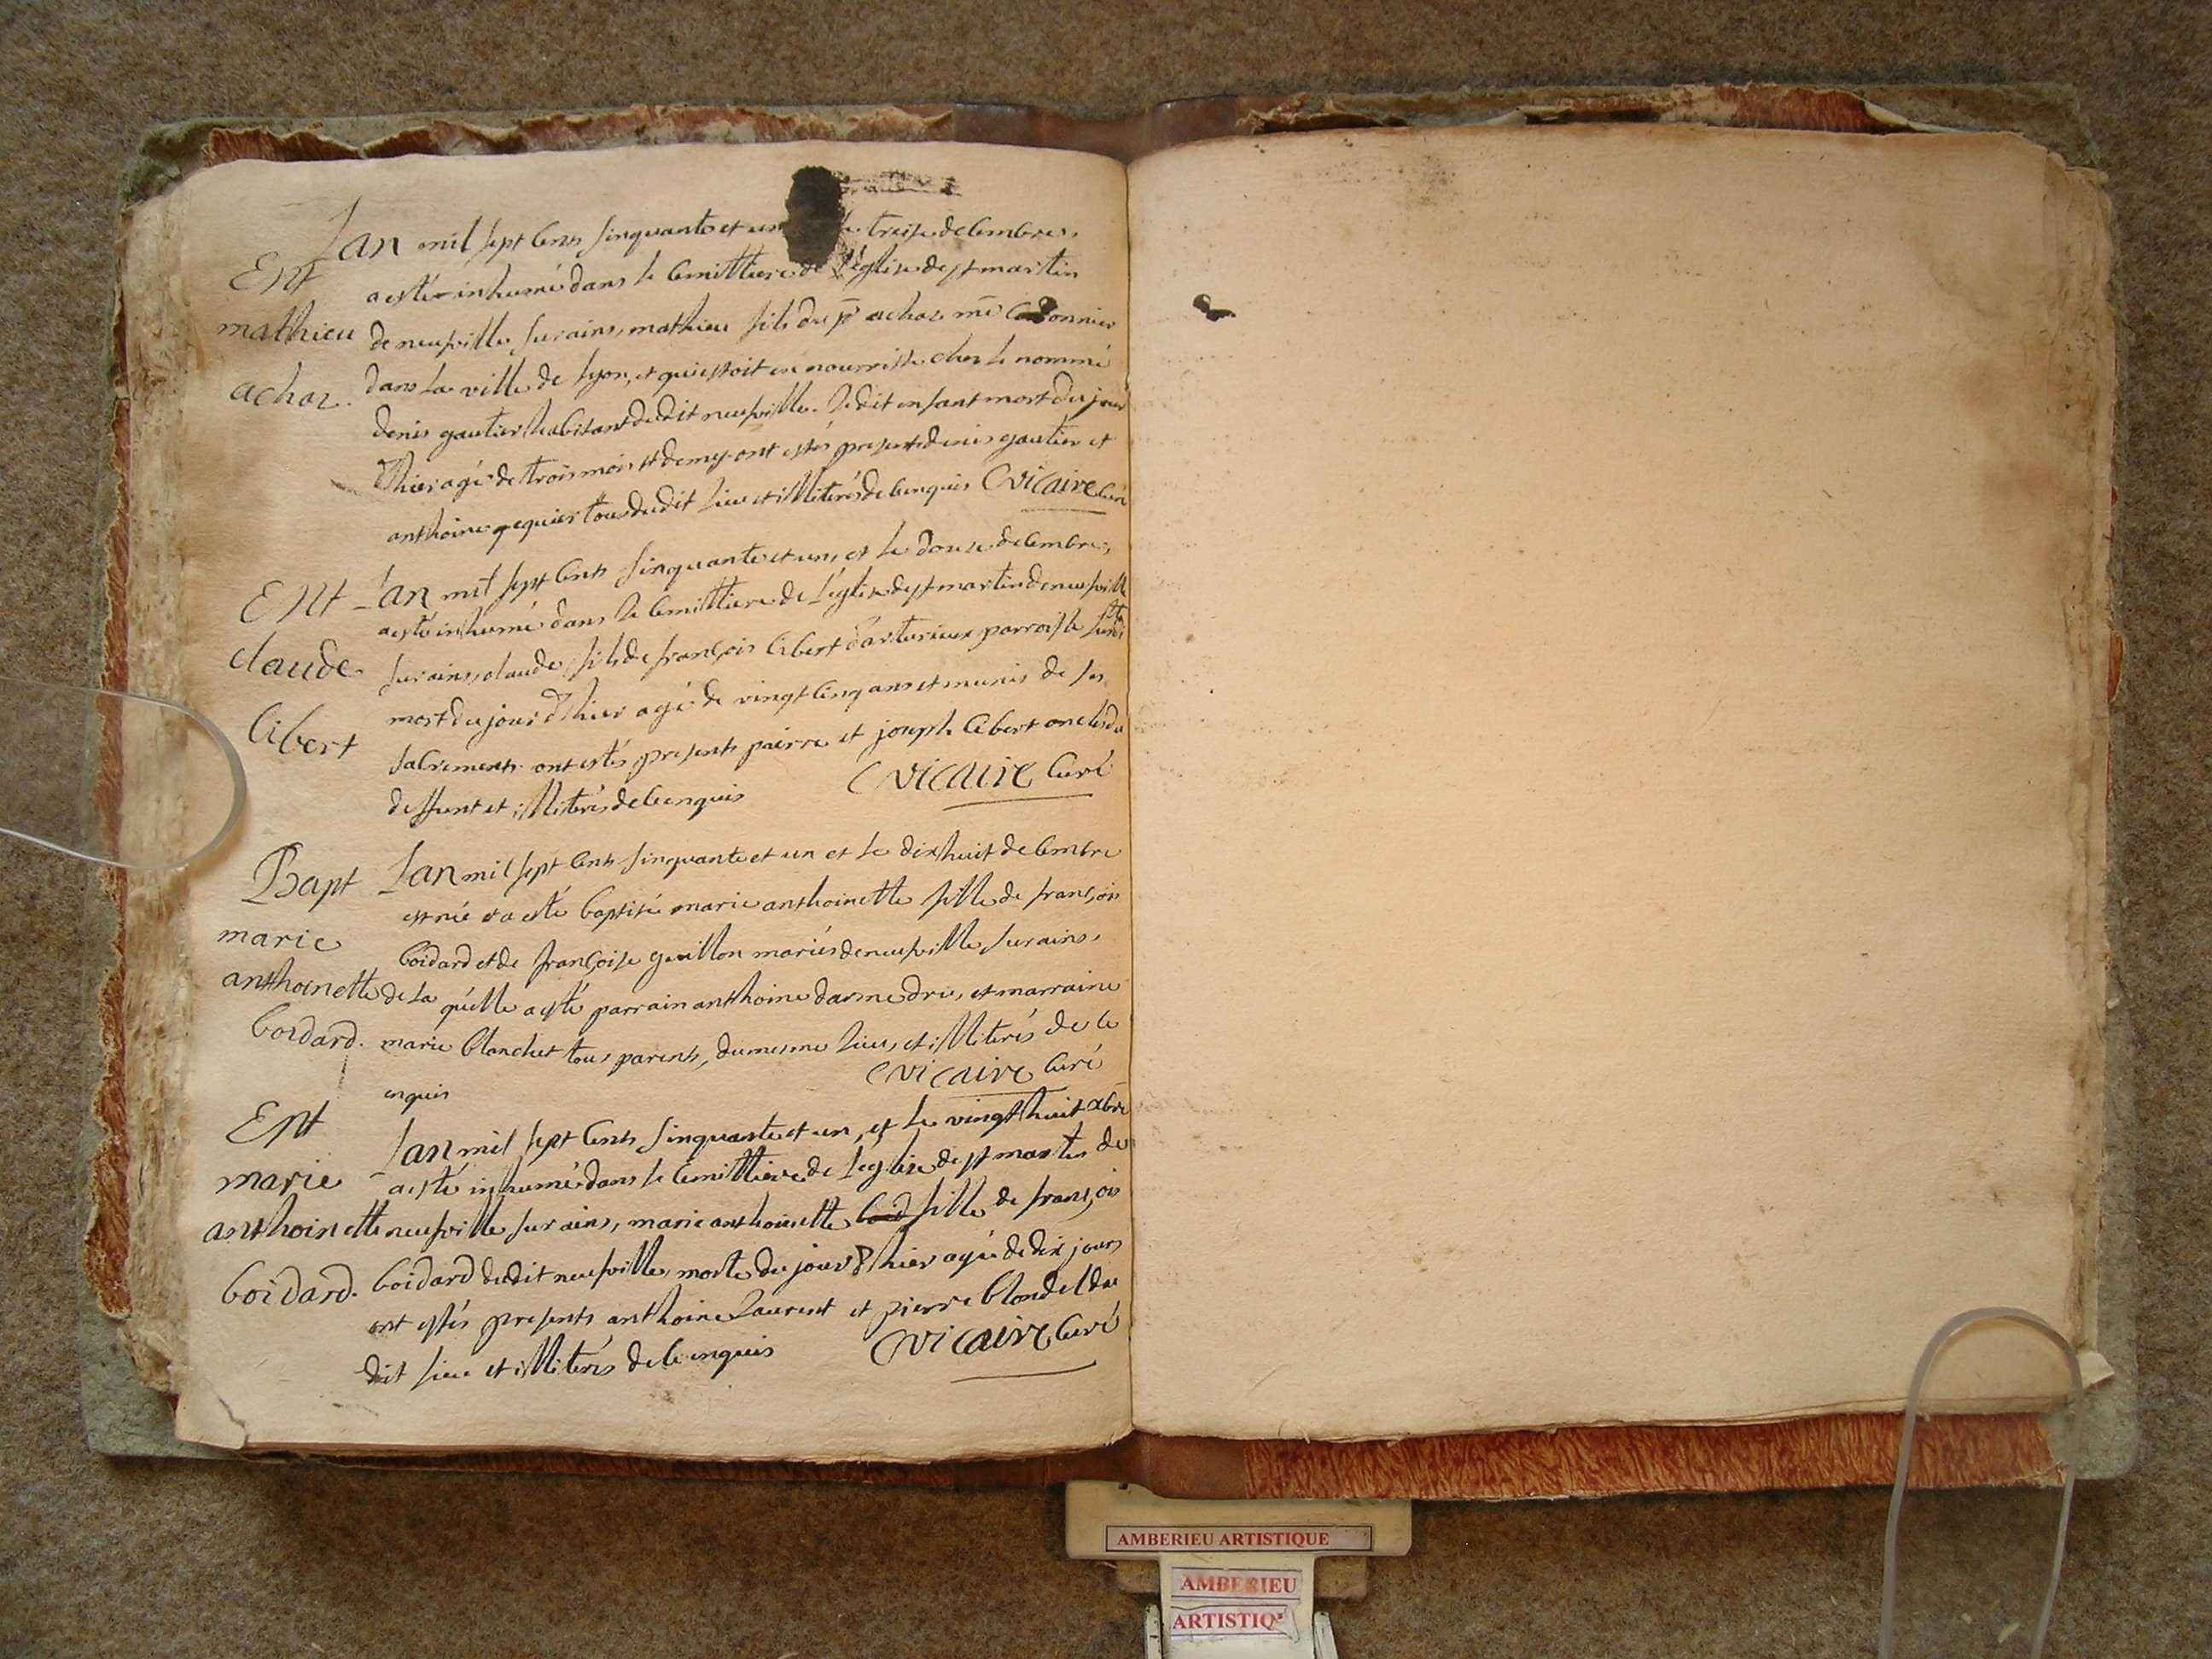 Lan mil sept cens sinquante et un le treise decembre,
Ent
a esté inhumé dans le cemittiere de l'église de st martin
mathieu
de neufville sur ains, mathieu fils du pr achar me cordonnier
achar.
dans la ville de lyon, et qui estoit en nourrisse chez le nommé
denis gautier habitant dudit neufville. ledit enfant mort du jour
d'hier agé de trois mois et demy. ont estés presents denis gautier et
anthoine tous dudit lieu et illiterés de ce enquis Vicaire curé
Ent
L'an mil sept cens sinquante et un, et le douze decembre,
a esté inhumé dans le cemittiere de l'église de st martin de neufville
claude
sur ains, claude fils de françois cibert parroisse
cibert
mort du jour d'hier agé de vingt cinq ans et munis de ses
sacrements. ont estés presents pierre et joseph cibert oncles du
deffunt et illiterés de ce enquis Vicaire curé
Bapt
Lan mil sept cens sinquante et un et le dix huit decembre
est née et a esté baptisé marie anthoinette fille de françois
marie
boidard et de françoise guillon mariés de neufville sur ains,
anthoinette
de la quelle a esté parrain anthoine et marraine
boidard.
marie blanchet tous parents, du mesme lieu, et illiterés de ce
enquis Vicaire curé
Ent
Lan mil sept cens sinquante et un, et le vingt huit xbre
marie
a esté inhumé dans le cemittiere de l'église de st martin de
anthoinette
neufville sur ains, marie anthoinette boid fille de françois
boidard.
boidard dudit neufville, morte du jour d'hier agée de dix jours
ont estés presents anthoine laurent et pierre blondel du
dit lieu et illiterés de ce enquis Vicaire curé
AMBERIEU ARTISTIQUE
AMBERIEU
ARTISTIQ